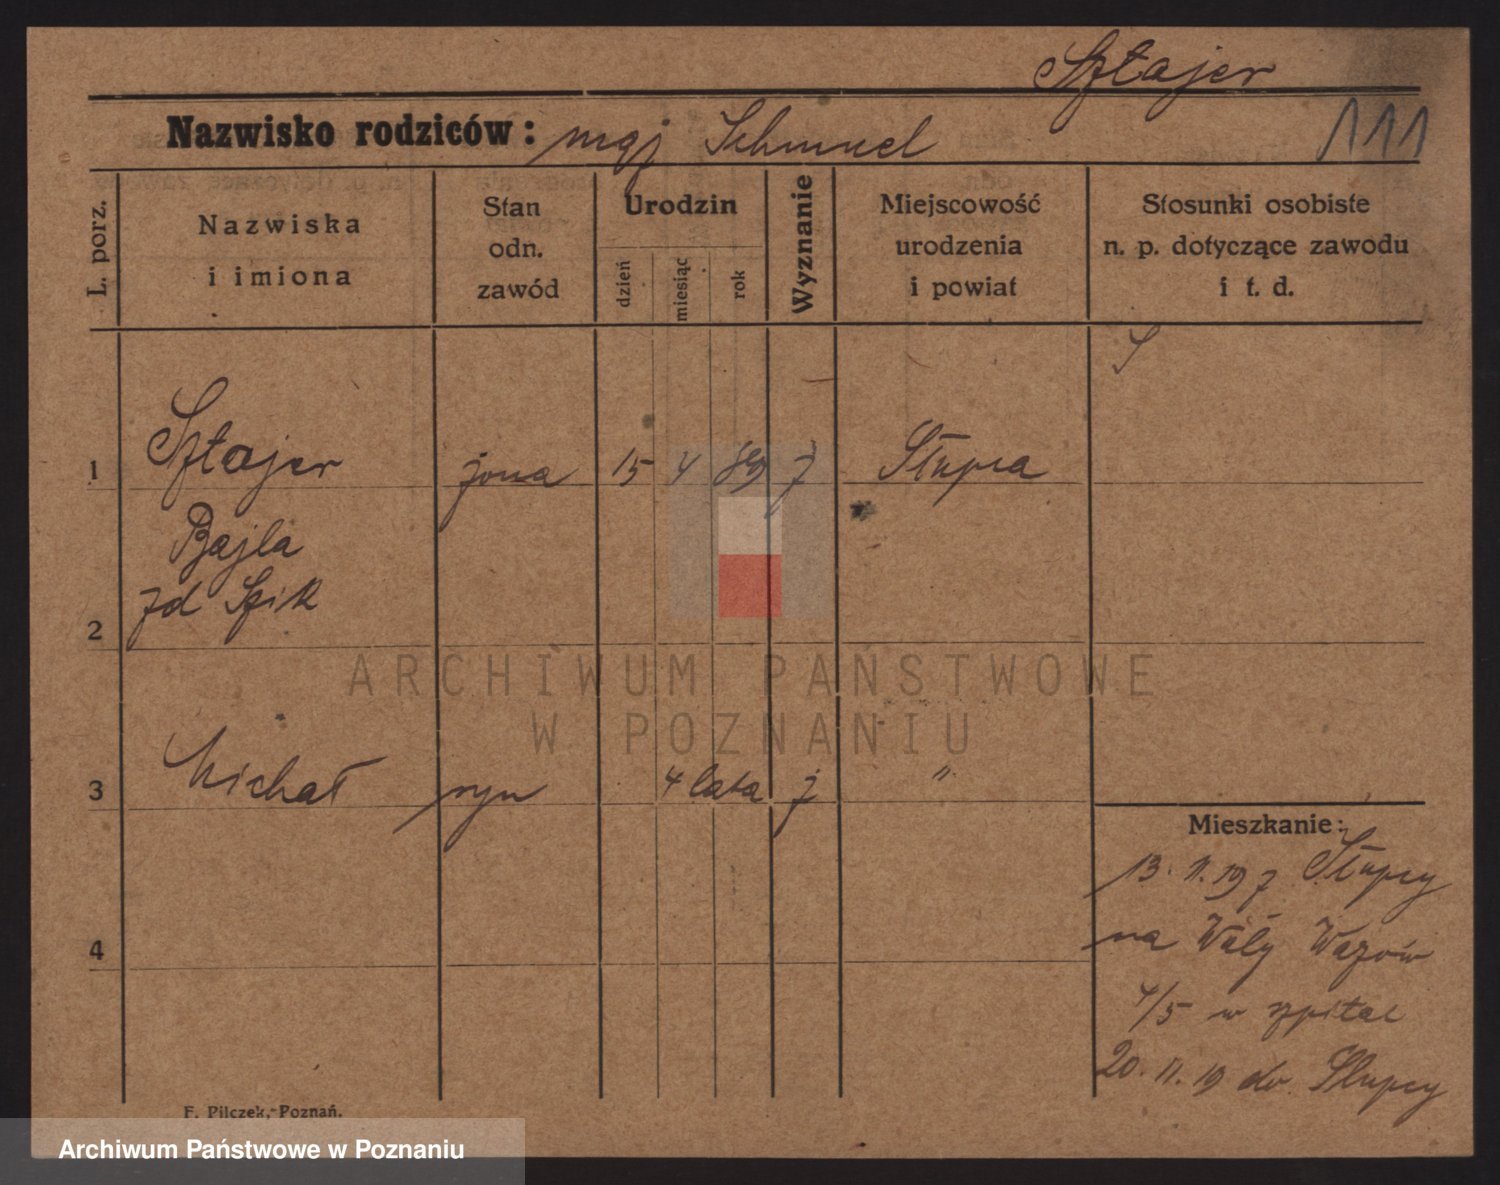 Sztajer
Nazwisko rodziców: mąż Schmuel
111
L. porz.
Nazwiska
i imiona
Stan
odn.
zawód
Urodzin
dzień
miesiąc
rok
Wyznanie
Miejscowość
urodzenia
i powiat
Stosunki osobiste
n. p. dotyczące zawodu
i t. d.
1 Sztajer żona 15 4 89 j Słupca
Bajla
zd Szik
2
3 Michał syn 4 lata j "
Mieszkanie:
13. 11. 19 z Słupcy
na Wały Wazów
4/5 w szpital
20. 11. 19 do Słupcy
4
F. Pilczek, Poznań.
ARCHIWUM PAŃSTWOWE
W POZNANIU
Archiwum Państwowe w Poznaniu